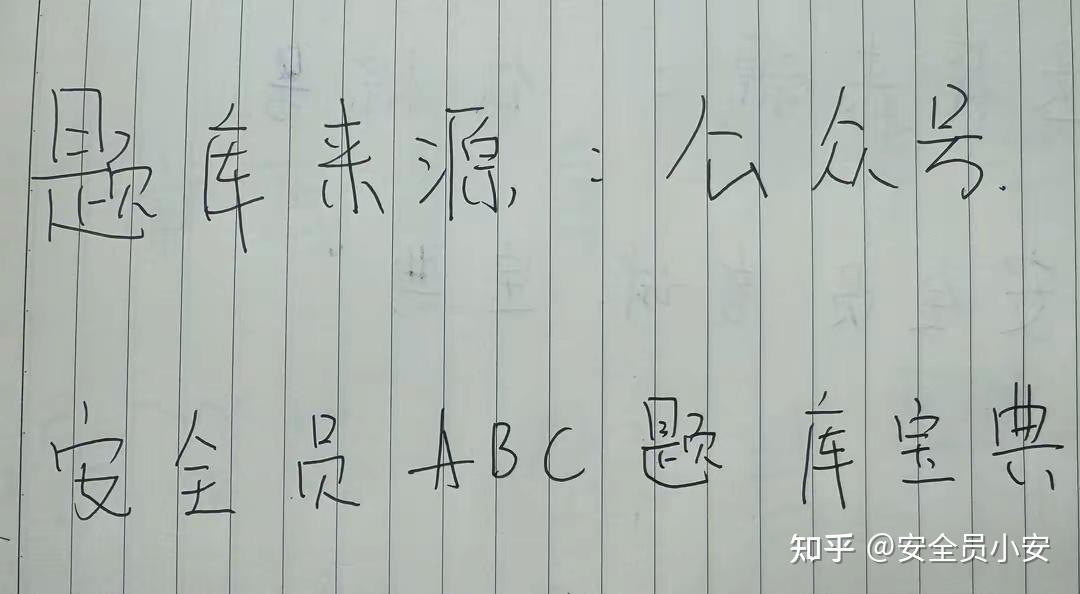 题库来源：公众号.
安全员ABC题库宝典
知乎 @安全员小安